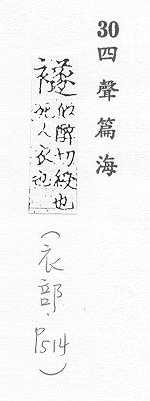 30
四聲篇海
襚
似醉切綬也
死人衣也
(衣部. P514)